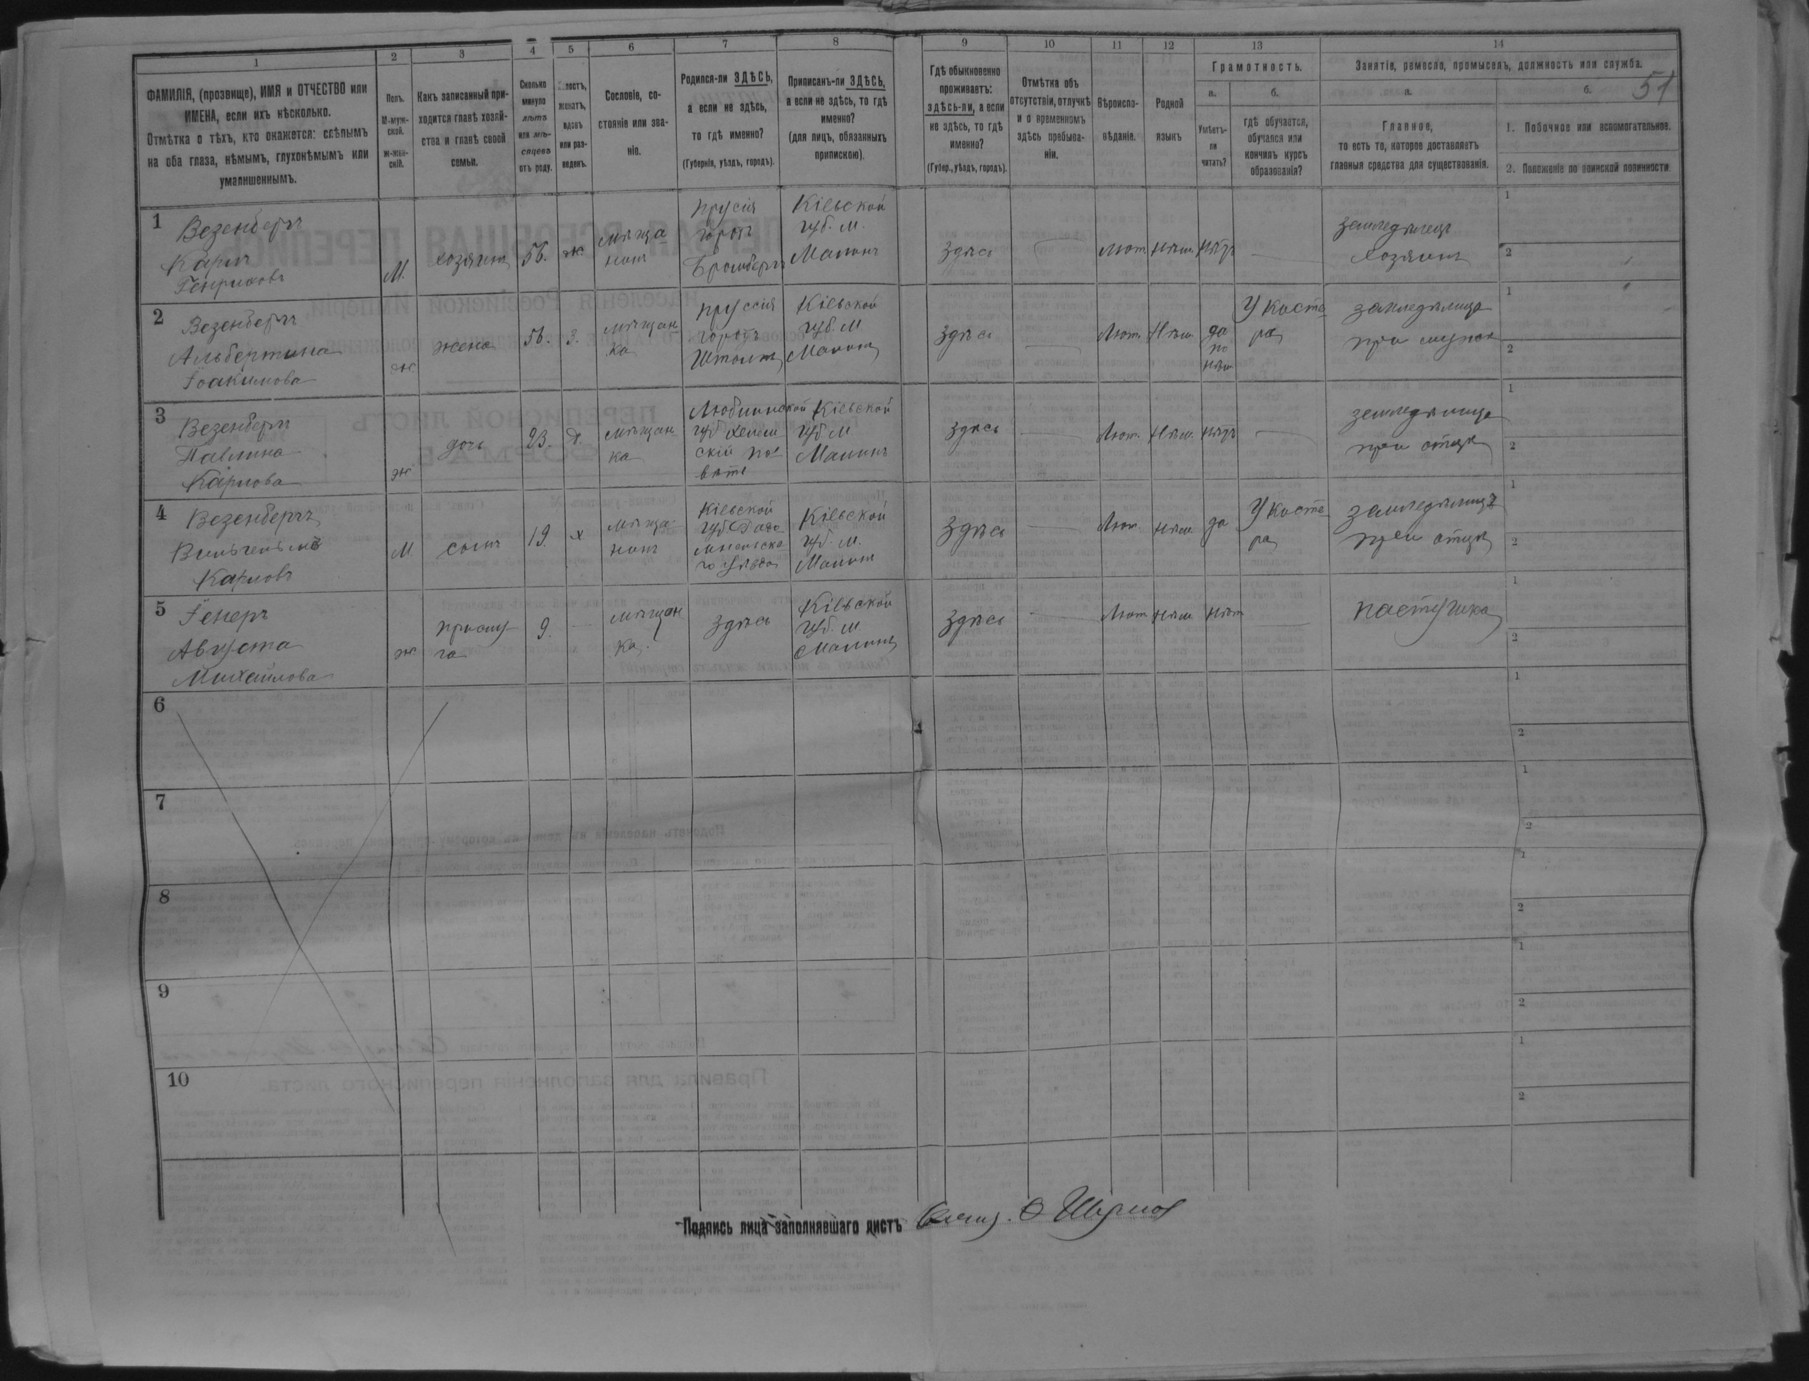 51
1
ФАМИЛІЯ, (прозвище), ИМЯ и ОТЧЕСТВО или
ИМЕНА, если ихъ нѣсколько.
Отмѣтка о тѣхъ, кто окажется: слѣпымъ
на оба глаза, нѣмымъ, глухонѣмымъ или
умалишеннымъ.
2
Полъ.
М-муж-
ской.
ж-жен-
скій.
3
Какъ записанный при-
ходится главѣ хозяй-
ства и главѣ своей
семьи.
4
Сколько
минуло
лѣтъ
или мѣ-
сяцевъ
отъ роду.
5
женатъ,
вдовъ
или раз-
веденъ.
6
Сословіе, со-
стояніе или зва-
ніе.
7
Родился-ли ЗДѢСЬ,
а если не здѣсь,
то гдѣ именно?
(Губернія, уѣздъ, городъ).
8
Приписанъ-ли ЗДѢСЬ,
а если не здѣсь, то гдѣ
именно?
(для лицъ, обязанныхъ
припискою).
9
Гдѣ обыкновенно
проживаетъ:
здѣсь-ли, а если
не здѣсь, то гдѣ
именно?
(Губер., уѣздъ, городъ).
10
Отмѣтка объ
отсутствіи, отлучкѣ
и о временномъ
здѣсь пребыва-
ніи.
11
Вѣроиспо-
вѣданіе.
12
Родной
языкъ
13
Грамотность.
а.
Умѣетъ-
ли
читать?
б.
гдѣ обучается,
обучался или
кончилъ курсъ
образованія?
14
Занятіе, ремесло, промыселъ, должность или служба.
а.
Главное,
то есть то, которое доставляетъ
главныя средства для существованія.
б.
1. Побочное или вспомогательное.
2. Положеніе по воинской повинности
1
Везенбергъ
Карлъ
Генриховъ
М.
хозяинъ
56.
ж
мѣща
нинъ
Пруссія
городъ
Бромбергъ
Кіевской
губ. М.
Малинъ
здѣсь
Лют
нѣм.
нѣтъ
земледѣлецъ
хозяинъ
1
2
2
Везенбергъ
Альбертина
Іоакимова
ж
жена
56.
з.
мѣщан
ка
Пруссія
городъ
Кіевской
губ. М
Малинъ
здѣсь
Лют
Нѣм.
да
по
нѣм
У кисте
ра
земледѣлица
при мужѣ
1
2
3
Везенбергъ
Павлина
Карлова
ж
дочь
23.
д.
мѣщан
ка
Люблинской
губ Холм
скій по
ватъ
Кіевской
губ М
Малинъ
здѣсь
Лют.
Нѣм.
нѣтъ
земледѣлица
при отцѣ
1
2
4
Везенбергъ
Вильгельмъ
Карловъ
М.
сынъ
19.
х
мѣща
нинъ
Кіевской
губ Радо
мысльска
го уѣзда
Кіевской
губ. М.
Малинъ
здѣсь
Лют.
нѣм.
да
У кисте
ра
земледѣлецъ
при отцѣ
1
2
5
Августа
Михайлова
ж
прислу
га
9.
мѣщан
ка.
здѣсь
Кіевской
губ. М.
Малинъ
здѣсь
Лют
нѣм
нѣт
пастушка
1
2
6
1
2
7
1
2
8
1
2
9
1
2
10
1
2
Подпись лица заполнявшаго листъ